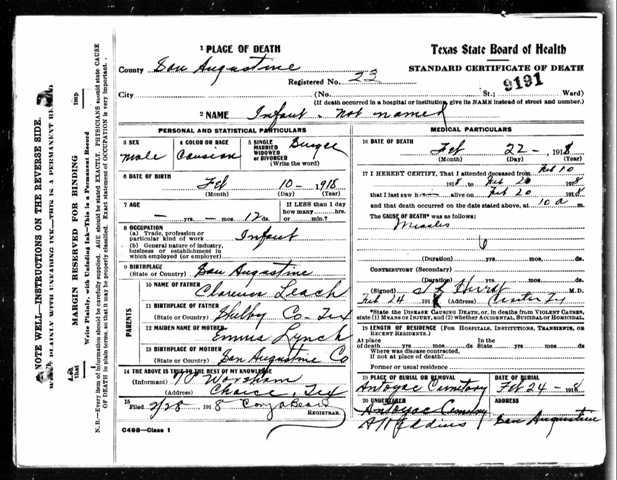 NOTE WELL—INSTRUCTIONS ON THE REVERSE SIDE.
MARGIN RESERVED FOR BINDING
Write Plainly, with Unfading Ink—This is a Permanent Record
N. B.—Every item of information should be carefully supplied. AGE should be stated EXACTLY. PHYSICIANS should state CAUSE
OF DEATH in plain terms, so that it may be properly classified. Exact statement of OCCUPATION is very important.
1 PLACE OF DEATH
Texas State Board of Health
County San Augustine
STANDARD CERTIFICATE OF DEATH
Registered No. 23
9191
City (No. St.; Ward)
(If death occurred in a hospital or institution, give its NAME instead of street and number.)
2 NAME Infant - Not named
PERSONAL AND STATISTICAL PARTICULARS
3 SEX male
4 COLOR OR RACE
5 SINGLE
MARRIED
WIDOWED
or DIVORCED
(Write the word)
6 DATE OF BIRTH
Feb 10 - 1918
(Month) (Day) (Year)
7 AGE
— yrs. — mos. 12 ds.
If LESS than 1 day
how many hrs.
or min.?
8 OCCUPATION
(a) Trade, profession or
particular kind of work Infant
(b) General nature of industry,
business or establishment in
which employed (or employer)
9 BIRTHPLACE
(State or Country) San Augustine
PARENTS
10 NAME OF FATHER Clarence Leach
11 BIRTHPLACE OF FATHER
(State or Country) Shelby Co. Tex
12 MAIDEN NAME OF MOTHER Emma Lynch
13 BIRTHPLACE OF MOTHER
(State or Country) San Augustine Co
14 THE ABOVE IS TRUE TO THE BEST OF MY KNOWLEDGE
(Informant) Worsham
(Address) Choice, Tex
15
Filed 2/28 1918
REGISTRAR.
C498—Class 1
MEDICAL PARTICULARS
16 DATE OF DEATH
Feb 22 - 1918
(Month) (Day) (Year)
17 I HEREBY CERTIFY, That I attended deceased from Feb 10
1918, to Feb 20 1918
that I last saw h alive on Feb 20 1918
and that death occurred on the date stated above, at 10 a m.
The CAUSE OF DEATH* was as follows:
Measles
6
(Duration) yrs. mos. ds.
CONTRIBUTORY (Secondary)
(Duration) yrs. mos. ds.
(Signed) Hurst M.D.
Feb 24 191 (Address) Center Tex
*State the DISEASE CAUSING DEATH, or, in deaths from VIOLENT CAUSES,
state (1) MEANS OF INJURY, and (2) whether ACCIDENTAL, SUICIDAL or HOMICIDAL.
18 LENGTH OF RESIDENCE (FOR HOSPITALS, INSTITUTIONS, TRANSIENTS, OR
RECENT RESIDENTS.)
At place
of death yrs. mos. ds. In the
State yrs. mos. ds.
Where was disease contracted,
if not at place of death?
Former or usual residence
19 PLACE OF BURIAL OR REMOVAL
Antoyac Cemetary
DATE OF BURIAL
Feb 24 - 1918
20 UNDERTAKER
Antoyac Cemetary
ADDRESS
San Augustine